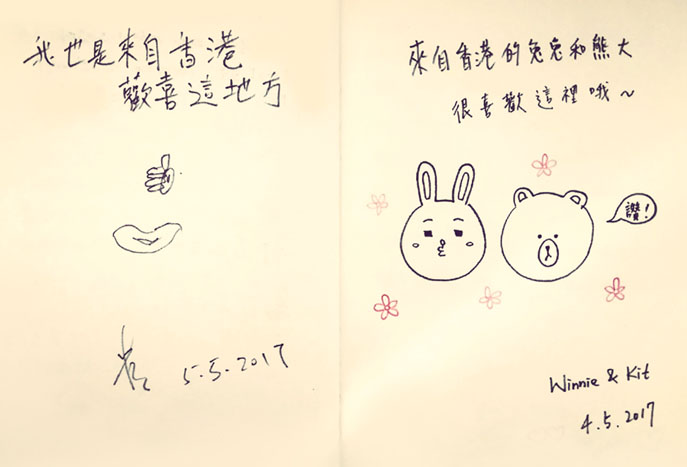 我也是來自香港
歡喜這地方
5.5.2017
來自香港的兔兔和熊大
很喜歡這裡哦～
讚!
Winnie & Kit
4.5.2017